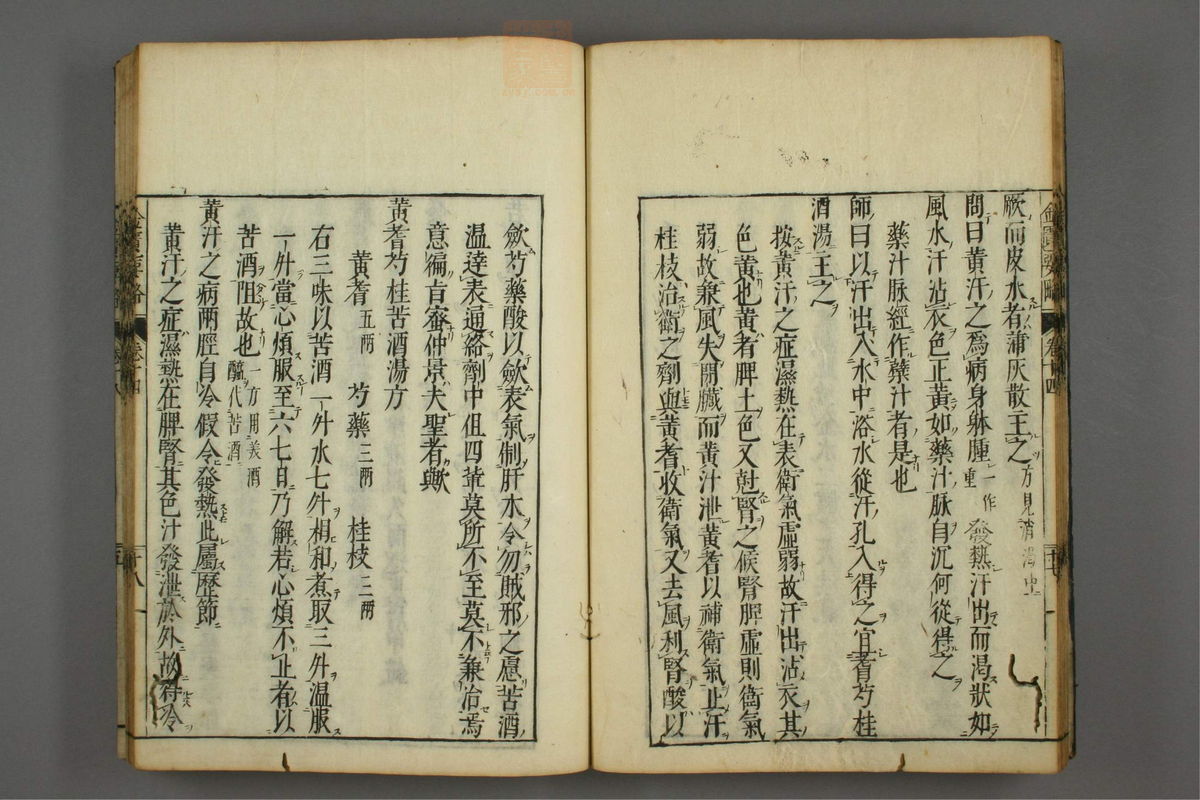 厥而皮水者蒲灰散主之方見消渴中
問曰黃汗之爲病身躰腫一作重發熱汗出而渴狀如
風水汗沾衣色正黃如藥汁脉自沉何從得之
藥汁脉經作蘗汁者是也
師曰以汗出入水中浴水從汗孔入得之宜耆芍桂
酒湯主之
按黃汗之症濕熱在表衛氣虛弱故汗出沾衣其
色黃也黃者脾土色又尅腎之候腎脾虛則衛氣
弱故兼風失閉臓而黃汁泄黃耆以補衛氣止汗
桂枝治衛之劑與黃耆收衛氣又去風利腎酸以
歛芍藥酸以歛表氣制肝木令勿賊邪之慮苦酒
溫達表通絡劑中但四葷莫所不至莫不兼治焉
意徧肯窾仲景大聖者歟
黃耆芍桂苦酒湯方
黃耆五兩 芍藥三兩 桂枝三兩
右三味以苦酒一升水七升相和煮取三升温服
一升當心煩服至六七日乃解若心煩不止者以
苦酒阻故也一方用美酒醯代苦酒
黃汗之病兩脛自冷假令發熱此屬歷節
黃汗之症濕熱在脾腎其色汁發泄於外故得冷